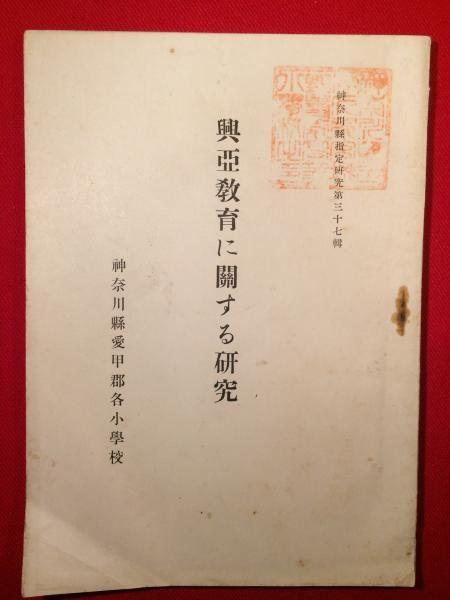 神奈川縣指定硏究第三十七輯
興亞敎育に關する硏究
神奈川縣愛甲郡各小學校